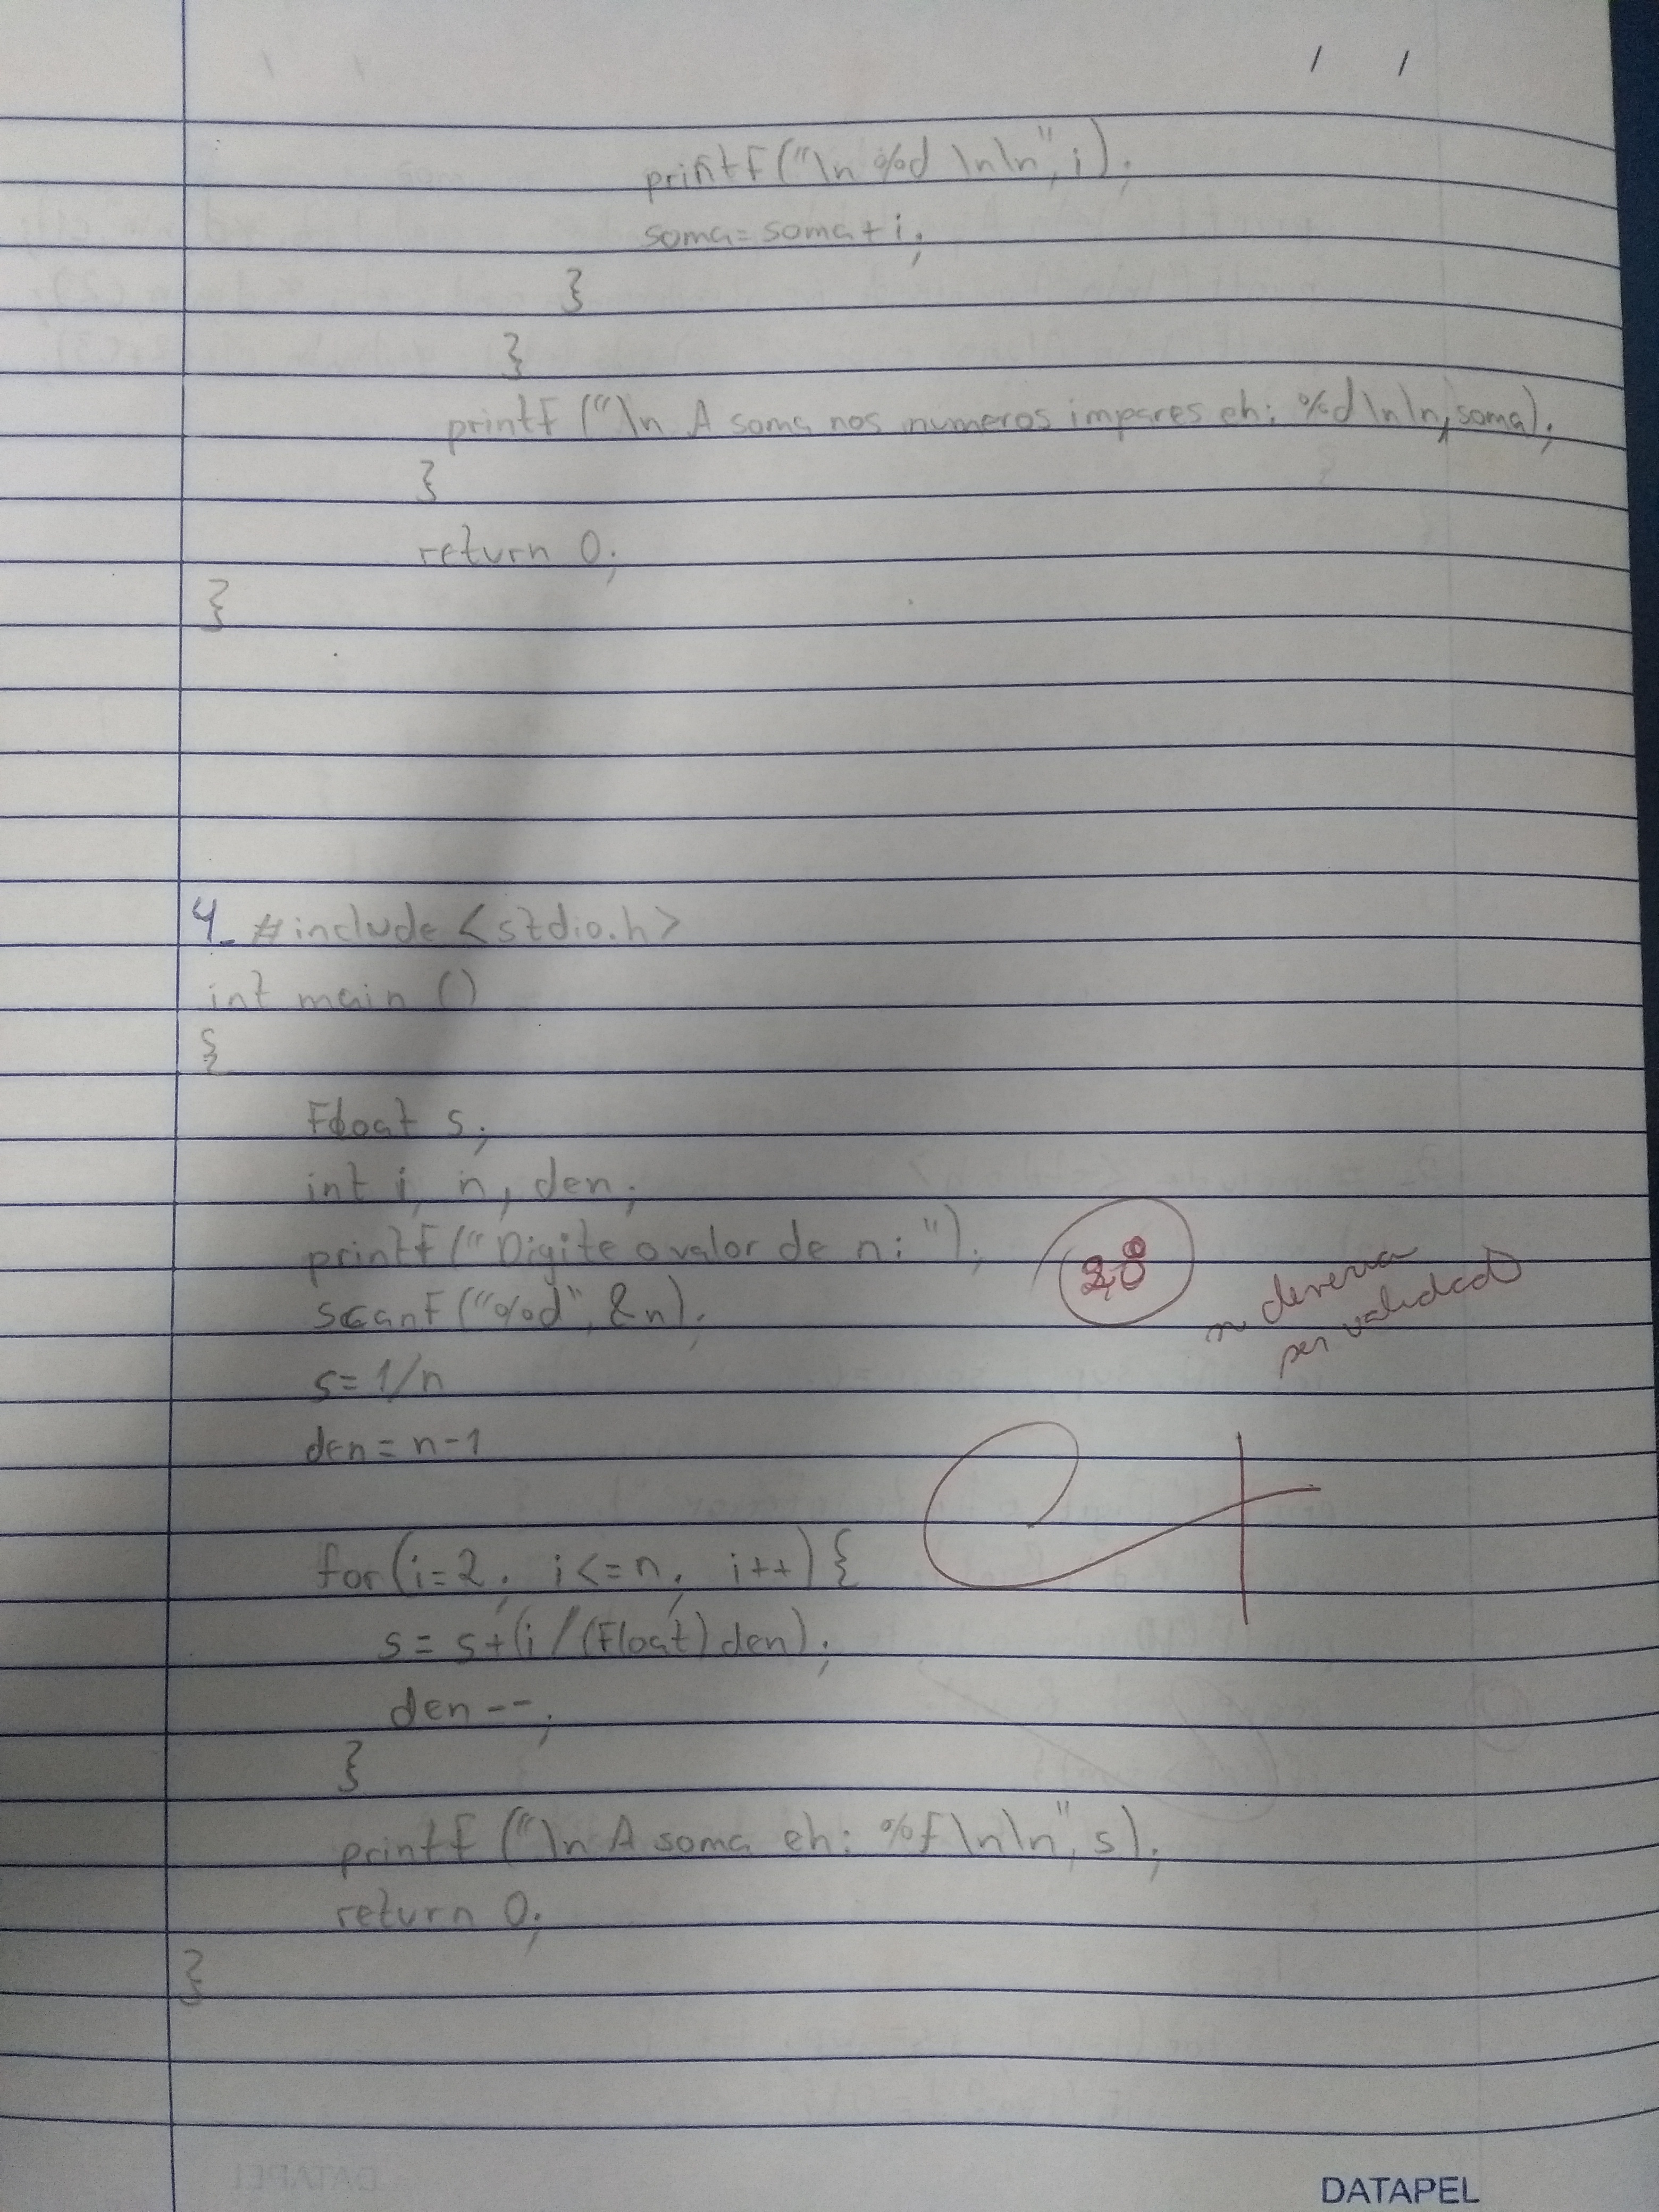 / /
printf("\n %d \n\n", i);
soma=soma+i;
}
}
printf ("\n A soma nos numeros impares eh: %d\n\n,soma);
}
return 0;
}
4_ #include <stdio.h>
int main ()
{
Float s;
int i, n, den;
printf("Digite o valor de n: ");
scanf("%d", &n);
n deveria
ser validado
s= 1/n
den = n-1
for(i=2; i<=n; i++){
s= s+(i/(Float)den);
den--;
}
printf ("\n A soma eh: %f\n\n", s);
return 0;
}
DATAPEL